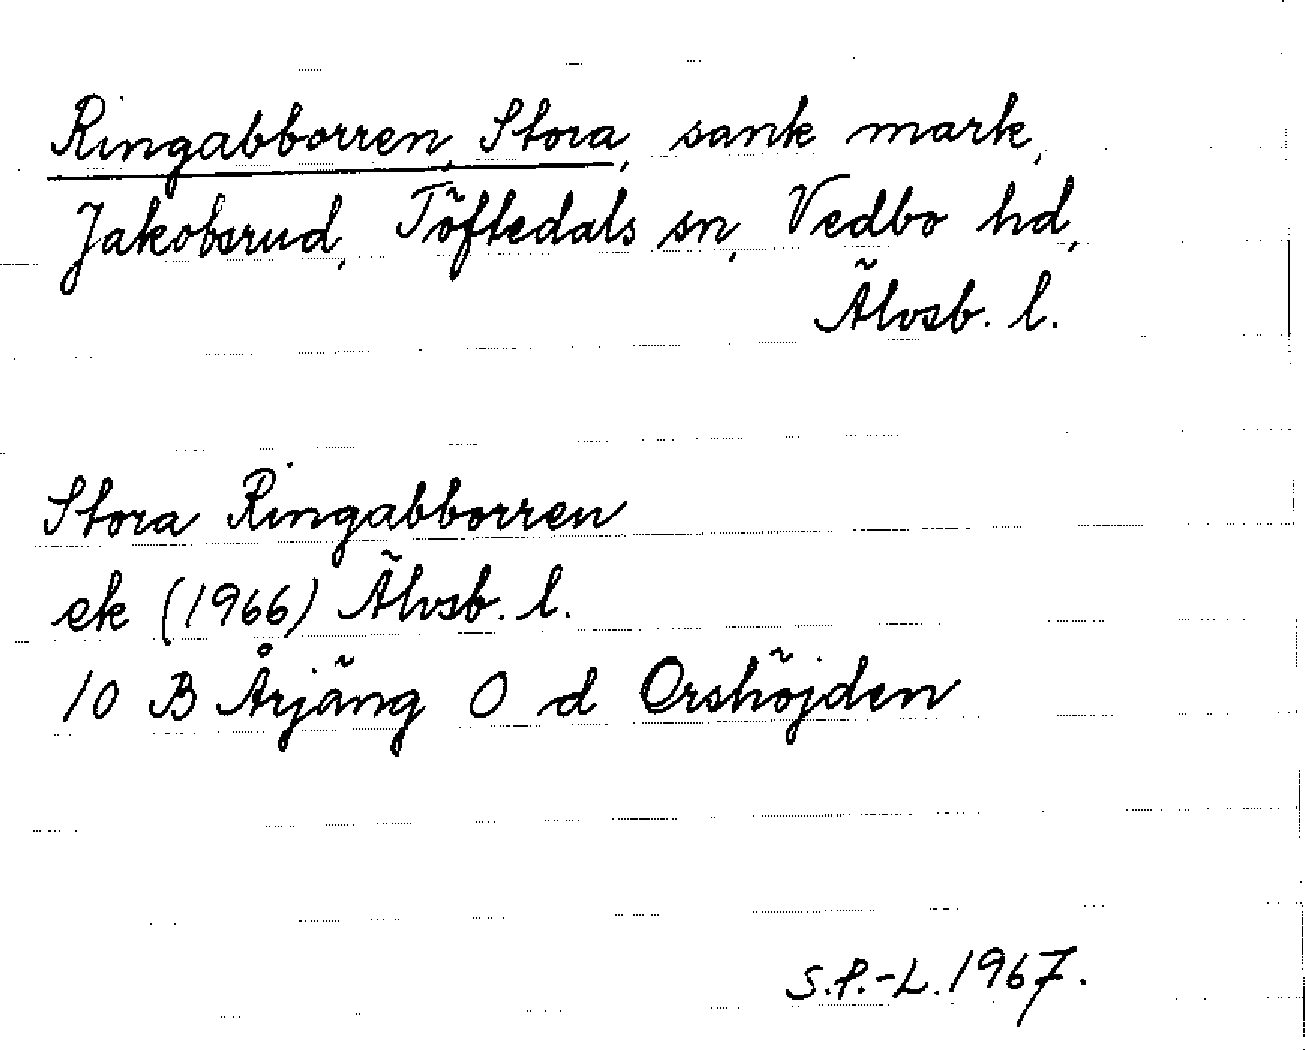 Ringabborren, Stora, sank mark,
Jakobsrud, Töftedals sn, Vedbo hd,
Älvsb. l.
Stora Ringabborren
ek (1966) Älvsb. l.
10 B Årjäng 0 d Orshöjden
S.P.-L. 1967.